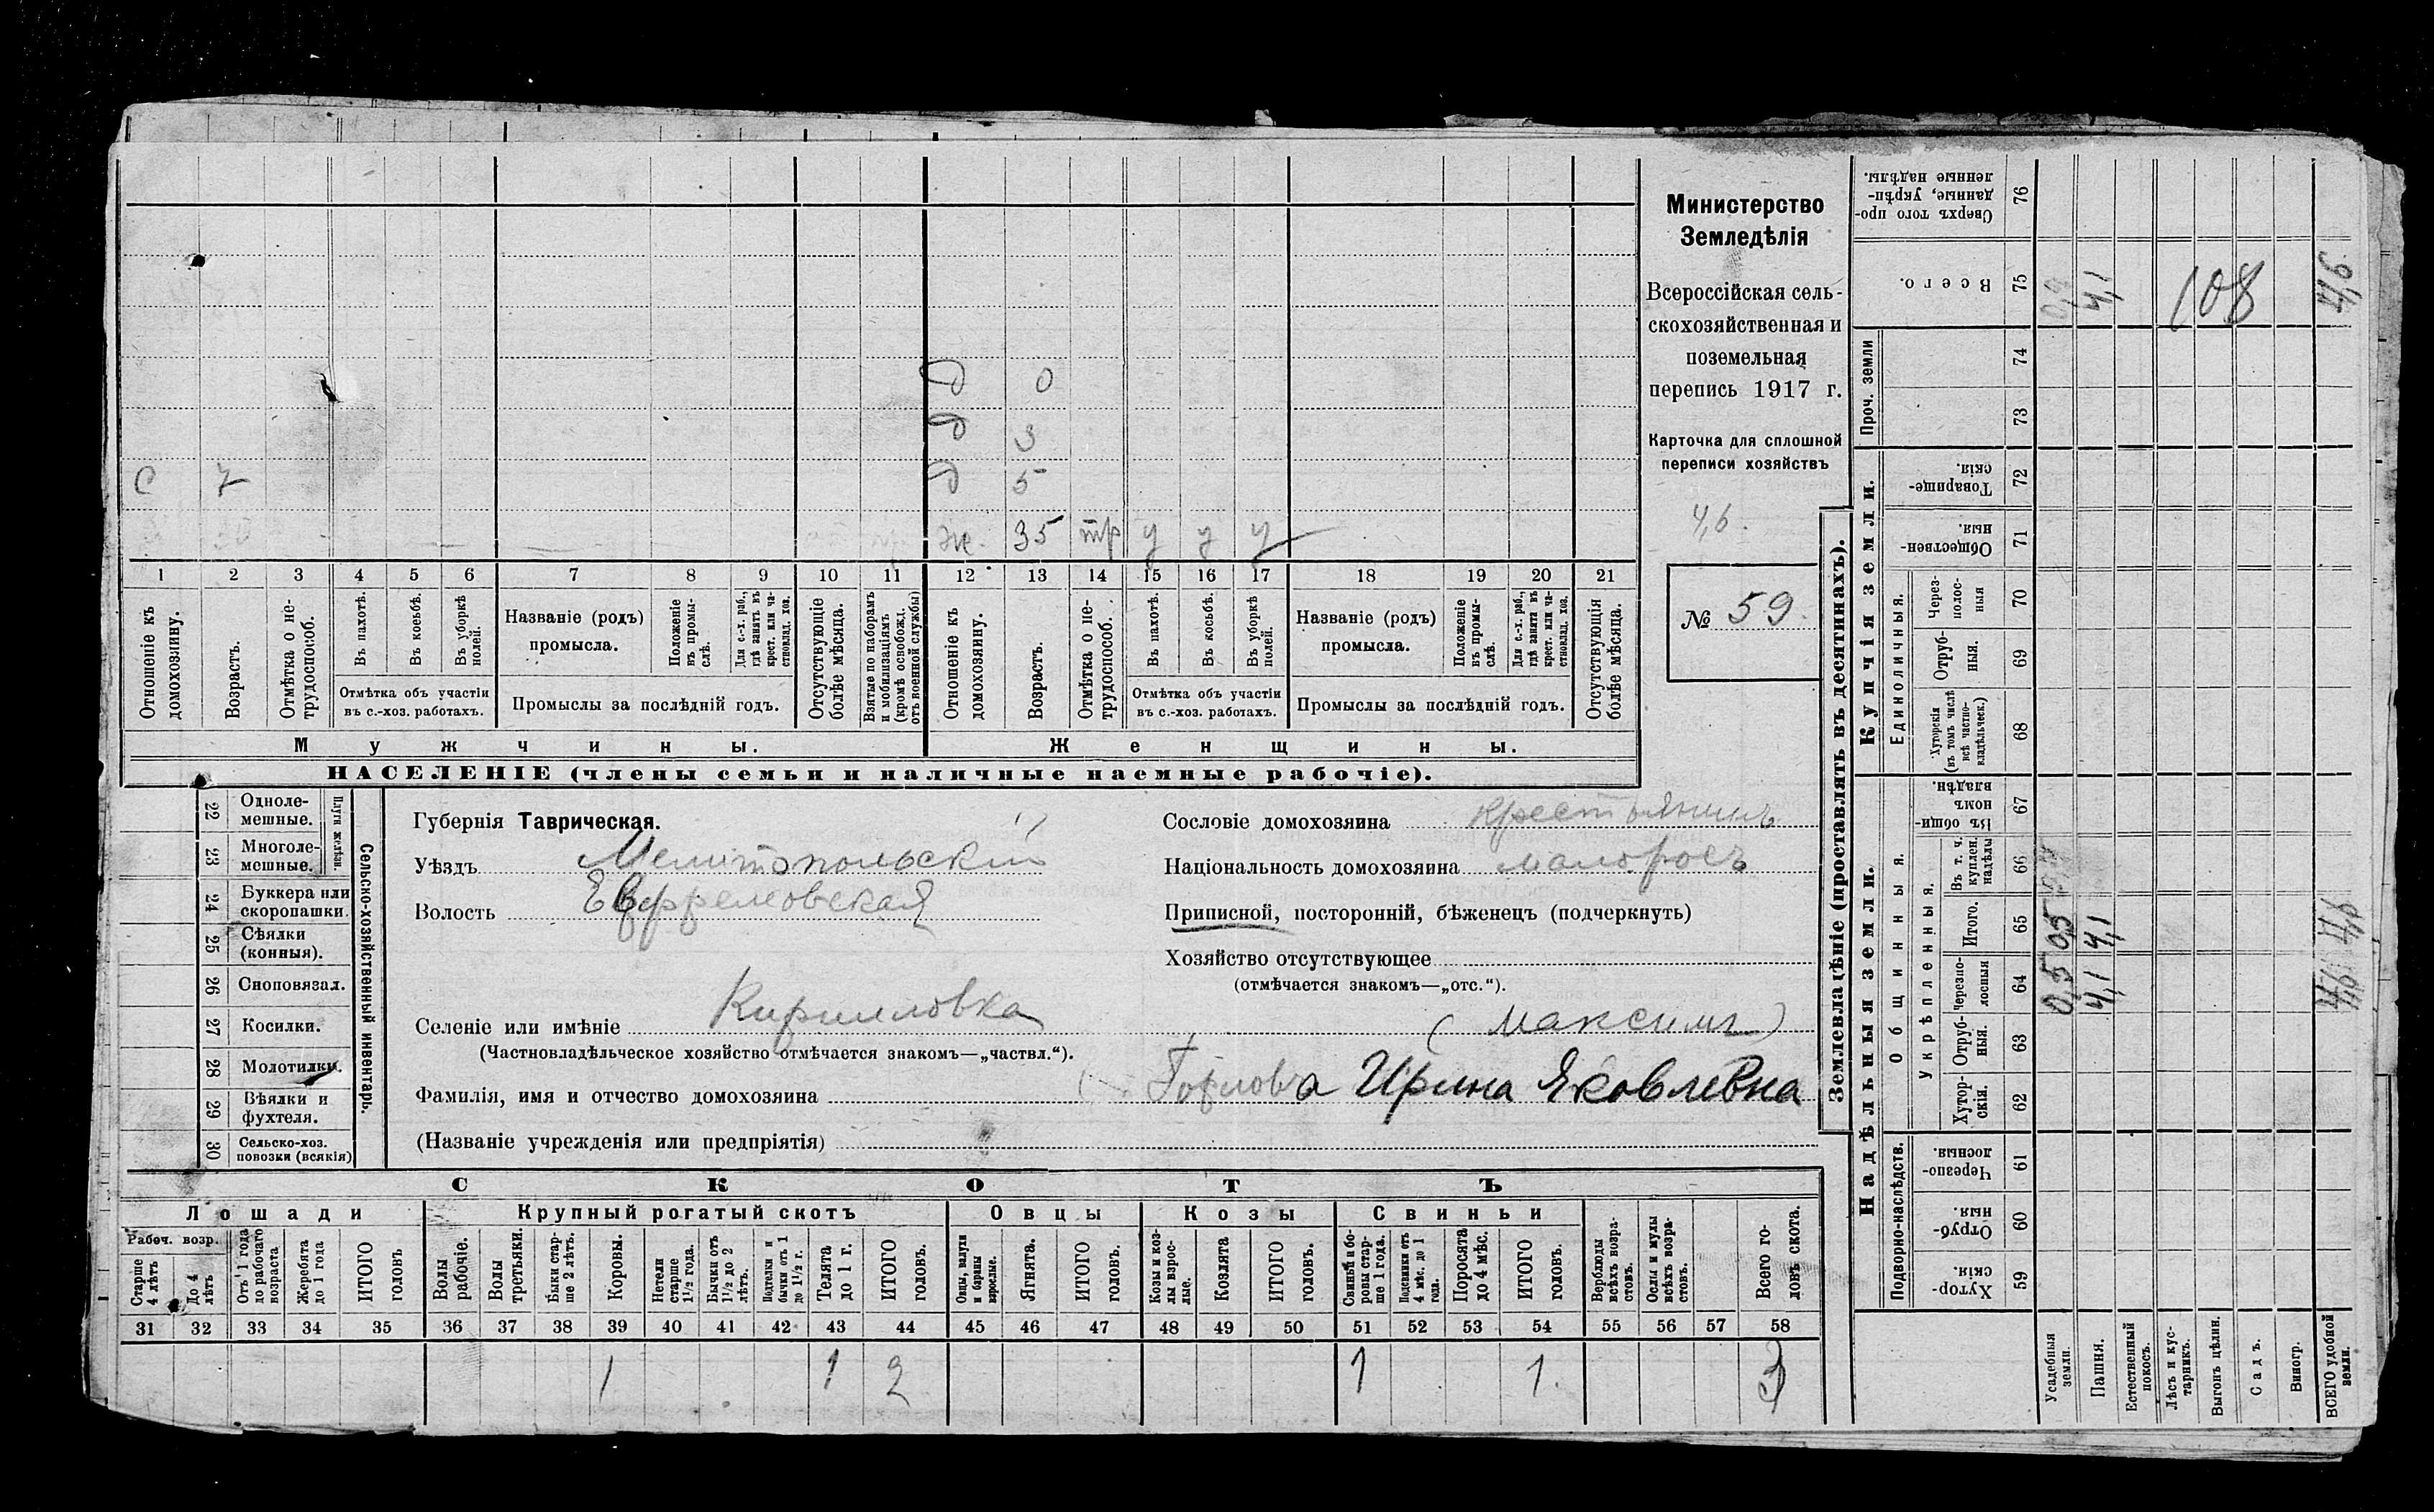 д 0
д 3
с 7 д 5
ж. 35 тр у у у
1 2 3 4 5 6 7 8 9 10 11 12 13 14 15 16 17 18 19 20 21
Отношеніе къ домохозяину.
Возрастъ.
Отмѣтка о нетрудоспособ.
Въ пахотѣ.
Въ косьбѣ.
Въ уборкѣ полей.
Отмѣтка объ участіи въ с.-хоз. работахъ.
Названіе (родъ) промысла.
Положеніе въ промыслѣ.
Для с.-х. раб., гдѣ занятъ въ крест. или частновлад. хоз.
Промыслы за послѣдній годъ.
Отсутствующіе болѣе мѣсяца.
Взятые по наборамъ и мобилизаціямъ (кромѣ освобожд. отъ военной службы)
Отношеніе къ домохозяину.
Возрастъ.
Отмѣтка о нетрудоспособ.
Въ пахотѣ.
Въ косьбѣ.
Въ уборкѣ полей.
Отмѣтка объ участіи въ с.-хоз. работахъ.
Названіе (родъ) промысла.
Положеніе въ промыслѣ.
Для с.-х. раб., гдѣ занята въ крест. или частновлад. хоз.
Промыслы за послѣдній годъ.
Отсутствующія болѣе мѣсяца.
Мужчины. Женщины.
НАСЕЛЕНІЕ (члены семьи и наличные наемные рабочіе).
Министерство
Земледѣлія
Всероссійская сель-
скохозяйственная и
поземельная
перепись 1917 г.
Карточка для сплошной
переписи хозяйствъ
4,6.
№ 59.
22 Однолемешные.
23 Многолемешные.
Плуги желѣзн.
24 Буккера или скоропашки.
25 Сѣялки (конныя).
26 Сноповязал.
27 Косилки.
28 Молотилки.
29 Вѣялки и фухтеля.
30 Сельско-хоз. повозки (всякія)
Сельско-хозяйственный инвентарь.
Губернія Таврическая.
Уѣздъ Мелитопольскій
Волость Ефремовская
Селеніе или имѣніе Кирилловка
(Частновладѣльческое хозяйство отмѣчается знакомъ—„частвл.“).
Сословіе домохозяина крестьянинъ
Національность домохозяина малоросъ
Приписной, посторонній, бѣженецъ (подчеркнуть)
Хозяйство отсутствующее
(отмѣчается знакомъ—„отс.“).
(Максимъ)
Фамилія, имя и отчество домохозяина Горлова Ирина Яковлевна
(Названіе учрежденія или предпріятія)
СКОТЪ
Лошади Крупный рогатый скотъ Овцы Козы Свиньи
Рабоч. возр.
Старше 4 лѣтъ
До 4 лѣтъ
Отъ 1 года до рабочаго возраста
Жеребята до 1 года
ИТОГО головъ
Волы рабочіе.
Волы третьяки.
Быки старше 2 лѣтъ.
Коровы.
Нетели старше 1½ года.
Бычки отъ 1½ до 2 лѣтъ.
Подтелки и бычки отъ 1 до 1½ г.
Телята до 1 г.
ИТОГО головъ.
Овцы, валухи и бараны взрослые.
Ягнята.
ИТОГО головъ.
Козы и козлы взрослые.
Козлята
ИТОГО головъ.
Свиньи и боровы старше 1 года.
Подсвинки отъ 4 мѣс. до 1 года.
Поросята до 4 мѣс.
ИТОГО головъ.
Верблюды всѣхъ возрастовъ.
Ослы и мулы всѣхъ возрастовъ.
Всего головъ скота.
31 32 33 34 35 36 37 38 39 40 41 42 43 44 45 46 47 48 49 50 51 52 53 54 55 56 57 58
1 1 2 1 1. 3
Землевладѣніе (проставлять въ десятинахъ).
Купчія земли.
Надѣльныя земли.
Сверхъ того проданные, укрѣпленные надѣлы. 76
Всего. 75 4,1 108 4,6
Проч. земли 74
73
Товарищескія. 72
Общественныя. 71
Единоличныя.
Черезполосныя 70
Отрубныя. 69
Хуторскія (въ томъ числѣ всѣ частновладѣльческ.) 68
Общинныя.
Въ общинномъ владѣн. 67
Укрѣпленныя.
Въ т. ч. куплен. надѣлы 66
Итого. 65 0,5 4,1
Черезполосныя 64 0,5 4,1
Отрубныя. 63
Хуторскія. 62
Подворно-наслѣдств.
Черезполосныя. 61
Отрубныя. 60
Хуторскія 59
Усадебныя земли.
Пашня.
Естественный покосъ.
Лѣсъ и кустарникъ.
Выгонъ цѣлин.
Садъ.
Виногр.
ВСЕГО удобной земли.